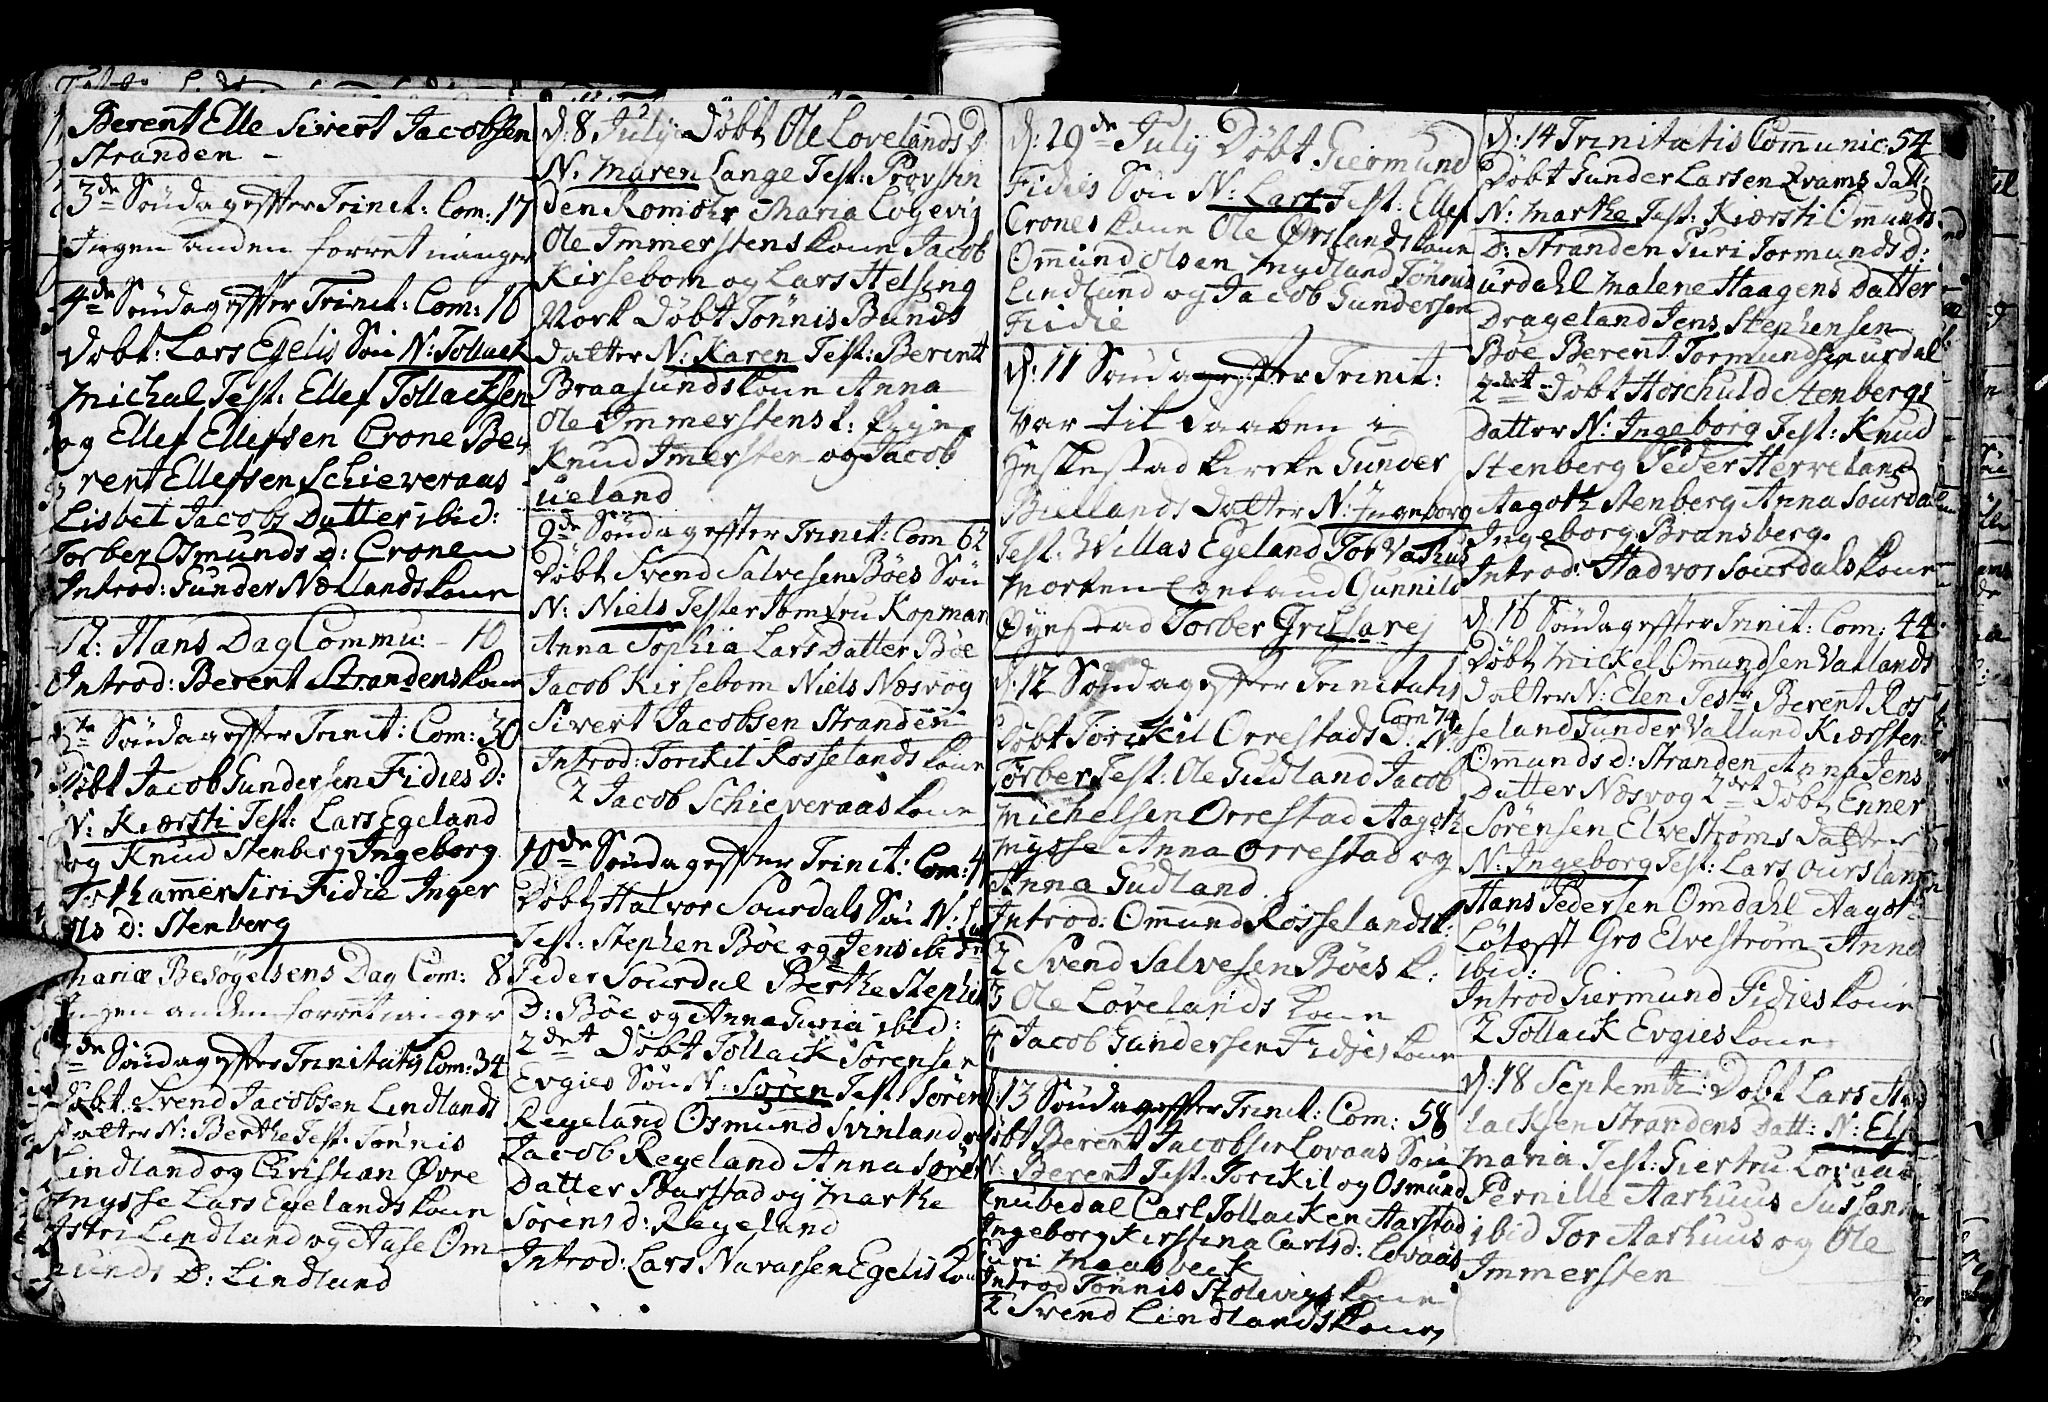 Berent Elle Sivert Jacobsen
Stranden -
3de Söndag effter Trinit: Com: 17
Ingen anden forretninger
4de Söndag effter Trinit: Com: 16
Dobt: Lars Egelis Sön N: Tollach
Michal Test: Ellef Tollachsen
og Ellef Ellefsen Crone Be
rent Ellefsen Schieveraas
Lisbet Jacobs Datter ibid:
Torber Osmunds D: Cronen
Introd: Gunder Nællands kone
St: Hans Dag Commu: - 10
Introd: Berent Strandens kone
Söndag effter Trinit: Com: 30
Döbt Jacob Gundersen Fidies D:
N: Kiersti Test: Lars Egeland
og Knud Stenberg Ingeborg
Torkamer Siri Fidie Inger
Ols D: Stenberg
Mariæ Besögelsens Dag Com: 8
Ingen anden forretninger
7de Söndag effter Trinitatis Com: 34
Döbt Svend Jacobsen Lindlands
Datter N: Berthe Test: Tönnis
Lindland og Christian Øvre
Mysse Lars Egelands kone
Astri Lindland og Aase Om
unds D: Lindland
d: 8 July Döbt Ole Lovelands D
N: Maren Lange Test: Provstin
Den Romöhr Maria Lygevig
Ole Immerstens kone Jacob
Kirsebom og Lars Helsing
Nork Döbt Tönnis Bunds
Datter N: Karen Test: Berent
Braasunds kone Anna
Ole Immerstens k:
Knud Imersten og Jacob
ueland
9de Söndag effter Trinit: Com 62
Döbt Svend Salvesen Böes Sön
N: Niels Tester Jomfru Kopman
Anna Sophia Lars Datter Böe
Jacob Kirsebom Niels Næsvog
Sivert Jacobsen Stranden
Introd: Torckil Rosselands kone
2 Jacob Schieveraas kone
10de Söndag effter Trinit: Com: 4
Döbt Halvor Sourdals Sön N:
Test: Stephen Böe og Jens ibid
Peder Sourdal Berthe Stephen
D: Böe og Anna Guria ibid:
2det Döbt Tollack Sörensen
Evgies Sön N: Sören Test: Sören
Regeland Osmund Svinland
Jacob Regeland Anna Sören
Datter Skarstad og Marthe
Sörens d: Regeland
Introd: Lars Navarsen Egelis kone
d: 29de July Döbt Giermund
Fidies Sön N: Lars Test: Ellef
Crones kone Ole Ørslands kone
Ommund Olsen Mydland Tönnus
Lindlund og Jacob Gundersen
Fidie
d: 11 Söndag effter Trinit:
Var til Daaben i
Heskestad kircke Gunder
Biellands Datter N: Ingeborg
Test: Willas Egeland Tor Vashus
Morten Egeland Gunnild
Øynestad Torber Grilsarej
d: 12 Söndag effter Trinitatis
Com 74
Döbt Torckil Orrestads D: N:
Torber Test: Ole Gudland Jacob
Michelsen Orrestad Aagoth
Mysse Anna Orrestad og
Anna Gudland
Introd: Ommund Rösselands k:
2 Svend Salvesen Böes k:
3 Ole Lövelands kone
4 Jacob Gundersen Fidies kone
d: 13 Söndag effter Trinit: Com: 58
Döbt Berent Jacobsen Lovaas Sön
N: Berent Test: Torckil og Osmund
Knubedal Carl Tollacken Aarstad
Ingeborg Kirstina Carls d: Lovaas
Guri Moosbeck
Introd Tönnis Stolevigs kone
2 Svend Lindlands kone
d: 14 Trinitatis Communic: 54
Döbt Gunder Larsen Qvams Datt:
N: Marthe Test: Kiersti Omunds
D: Stranden Guri Tormunds D:
urdahl Malene Haagens Datter
Drageland Jens Stephensen
Böe Berent Tormundsen urdal
2det Döbt Hoschuld Stenbergs
Datter N: Ingeborg Test: Knud
Stenberg Peder Herreland
Aagoth Stenberg Anna Sourdal
Ingeborg Bransberg.
Introd: Hadvor Sourdals kone
d: 16 Söndag effter Trinit: Com: 44
Döbt Mickel Omundsen Vallands
Datter N: Elen Testr Berent Ros
seland Gunder Valland Kiersten
Omunds D: Stranden Anna Jens
Datter Næsvog 2det Döbt Enner
Sörensen Elvestroms Datter
N: Ingeborg Test: Lars Oursland
Hans Pedersen Omdahl Aagot
Lötofft Gro Elveström Anna
ibid:
Introd Giermund Fidies kone
2 Tollack Evgies kone
d: 18 Septembr: Döbt Lars
lacksen Strandens Datt: N: Else
Maria Test: Giertru Lovaas
Pernille Aarhuus Sussann
ibid Tor Aarhuus og Ole
Immersten